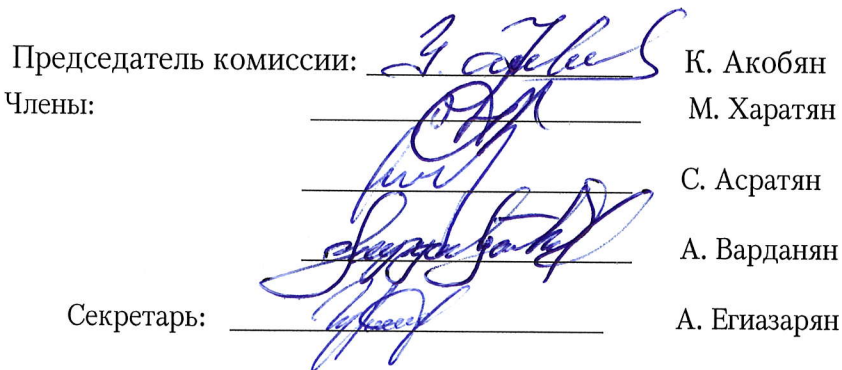 Председатель комиссии: К. Акобян
Члены: М. Харатян
С. Асратян
А. Варданян
Секретарь: А. Егиазарян